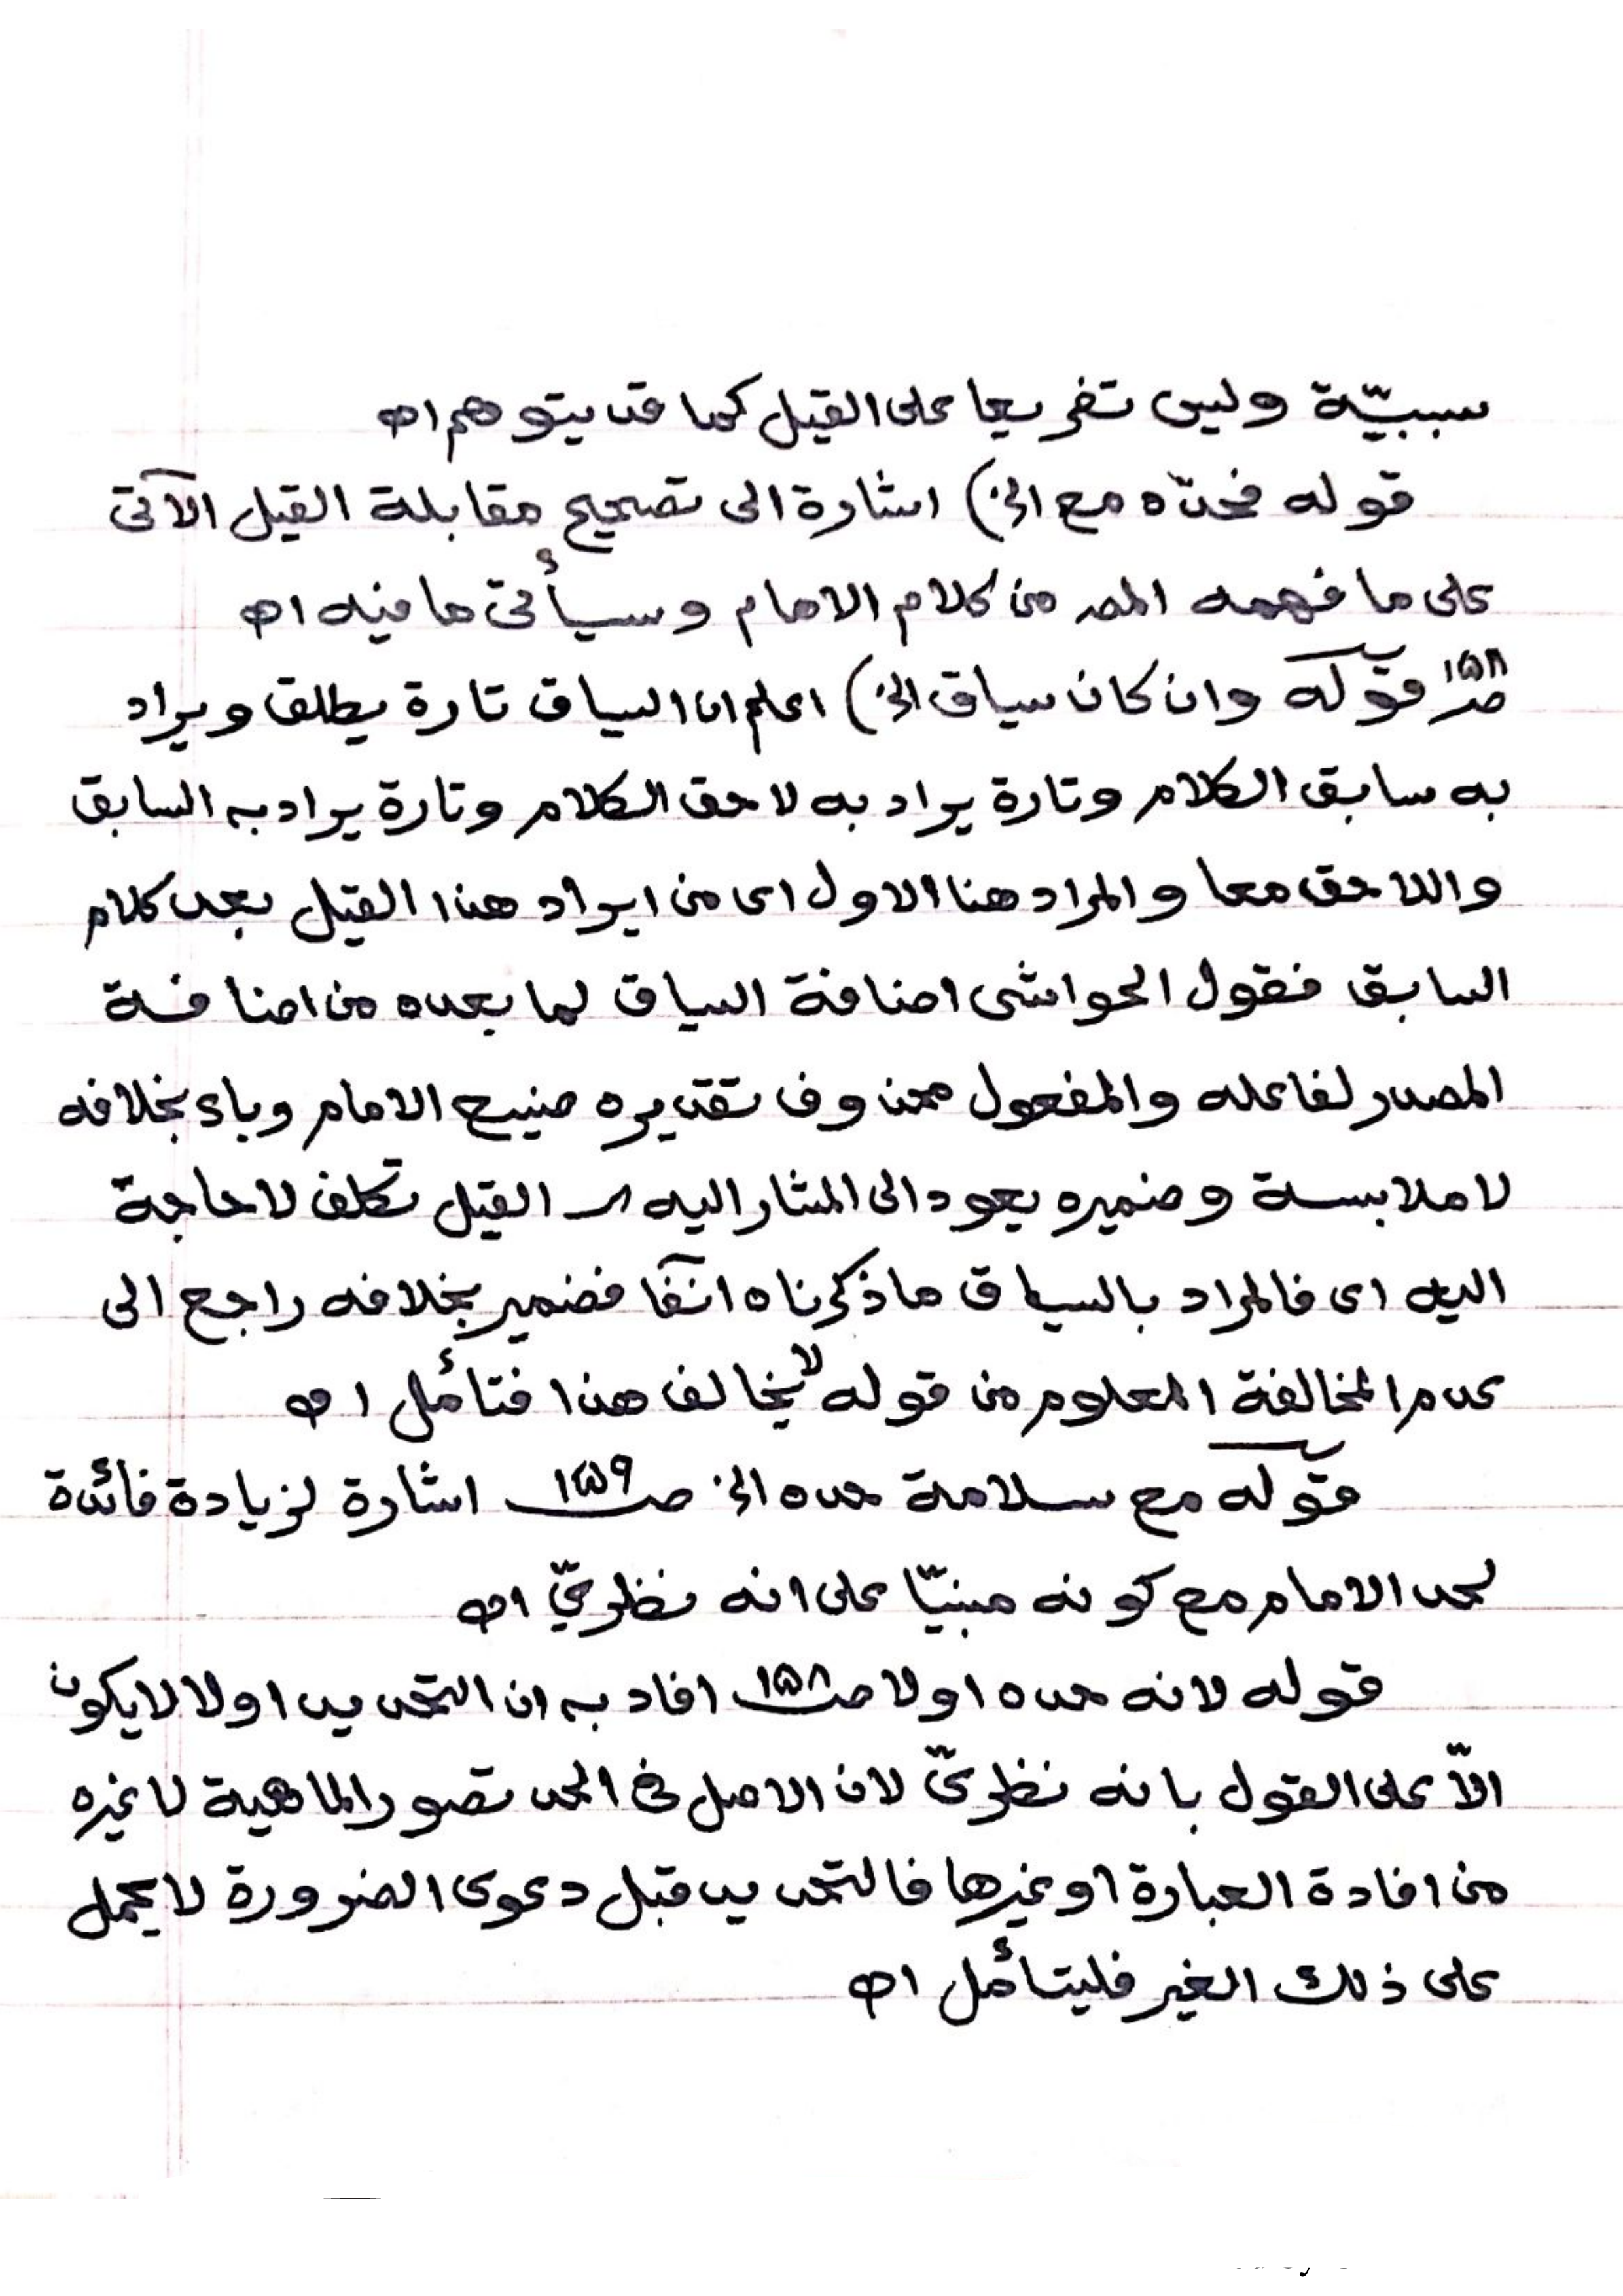 سببيّة وليس تفريعا على القيل كما قد يتوهم اه
قوله فحدّه مع الخ) اشارة الى تصحيح مقابلة القيل الآتى
على ما فهمه المصـ من كلام الامام وسيأتى ما فيه اه
صـ١٥٨ قوله وان كان سياق الخ) اعلم ان السياق تارة يطلق ويراد
به سابق الكلام وتارة يراد به لاحق الكلام وتارة يراد به السابق
واللاحق معا والمراد هنا الاول اى من ايراد هذا القيل بعد كلام
السابق فقول الحواشى اضافة السياق لما بعده من اضافة
المصدر لفاعله والمفعول محذوف تقديره صنيع الامام وباء بخلافه
لاملابسة وضميره يعود الى المشار اليه الـ القيل تكلف لا حاجة
اليه اى فالمراد بالسياق ما ذكرناه آنفا فضمير بخلافه راجع الى
عدم المخالفة المعلوم من قوله لا يخالف هذا فتأمل اه
قوله مع سلامة حده الخ صـ١٥٩ اشارة لزيادة فائدة
لحد الامام مع كونه مبنيّا على انه نظرىّ اه
قوله لانه حده اولا صـ١٥٨ افاد به ان التحديد اولا لا يكون
الاّ على القول بانه نظرىّ لان الاصل فى الحد تصور الماهية لا غيره
من افادة العبارة او غيرها فالتحديد قبل دعوى الضرورة لا يحمل
على ذلك الغير فليتأمل اه